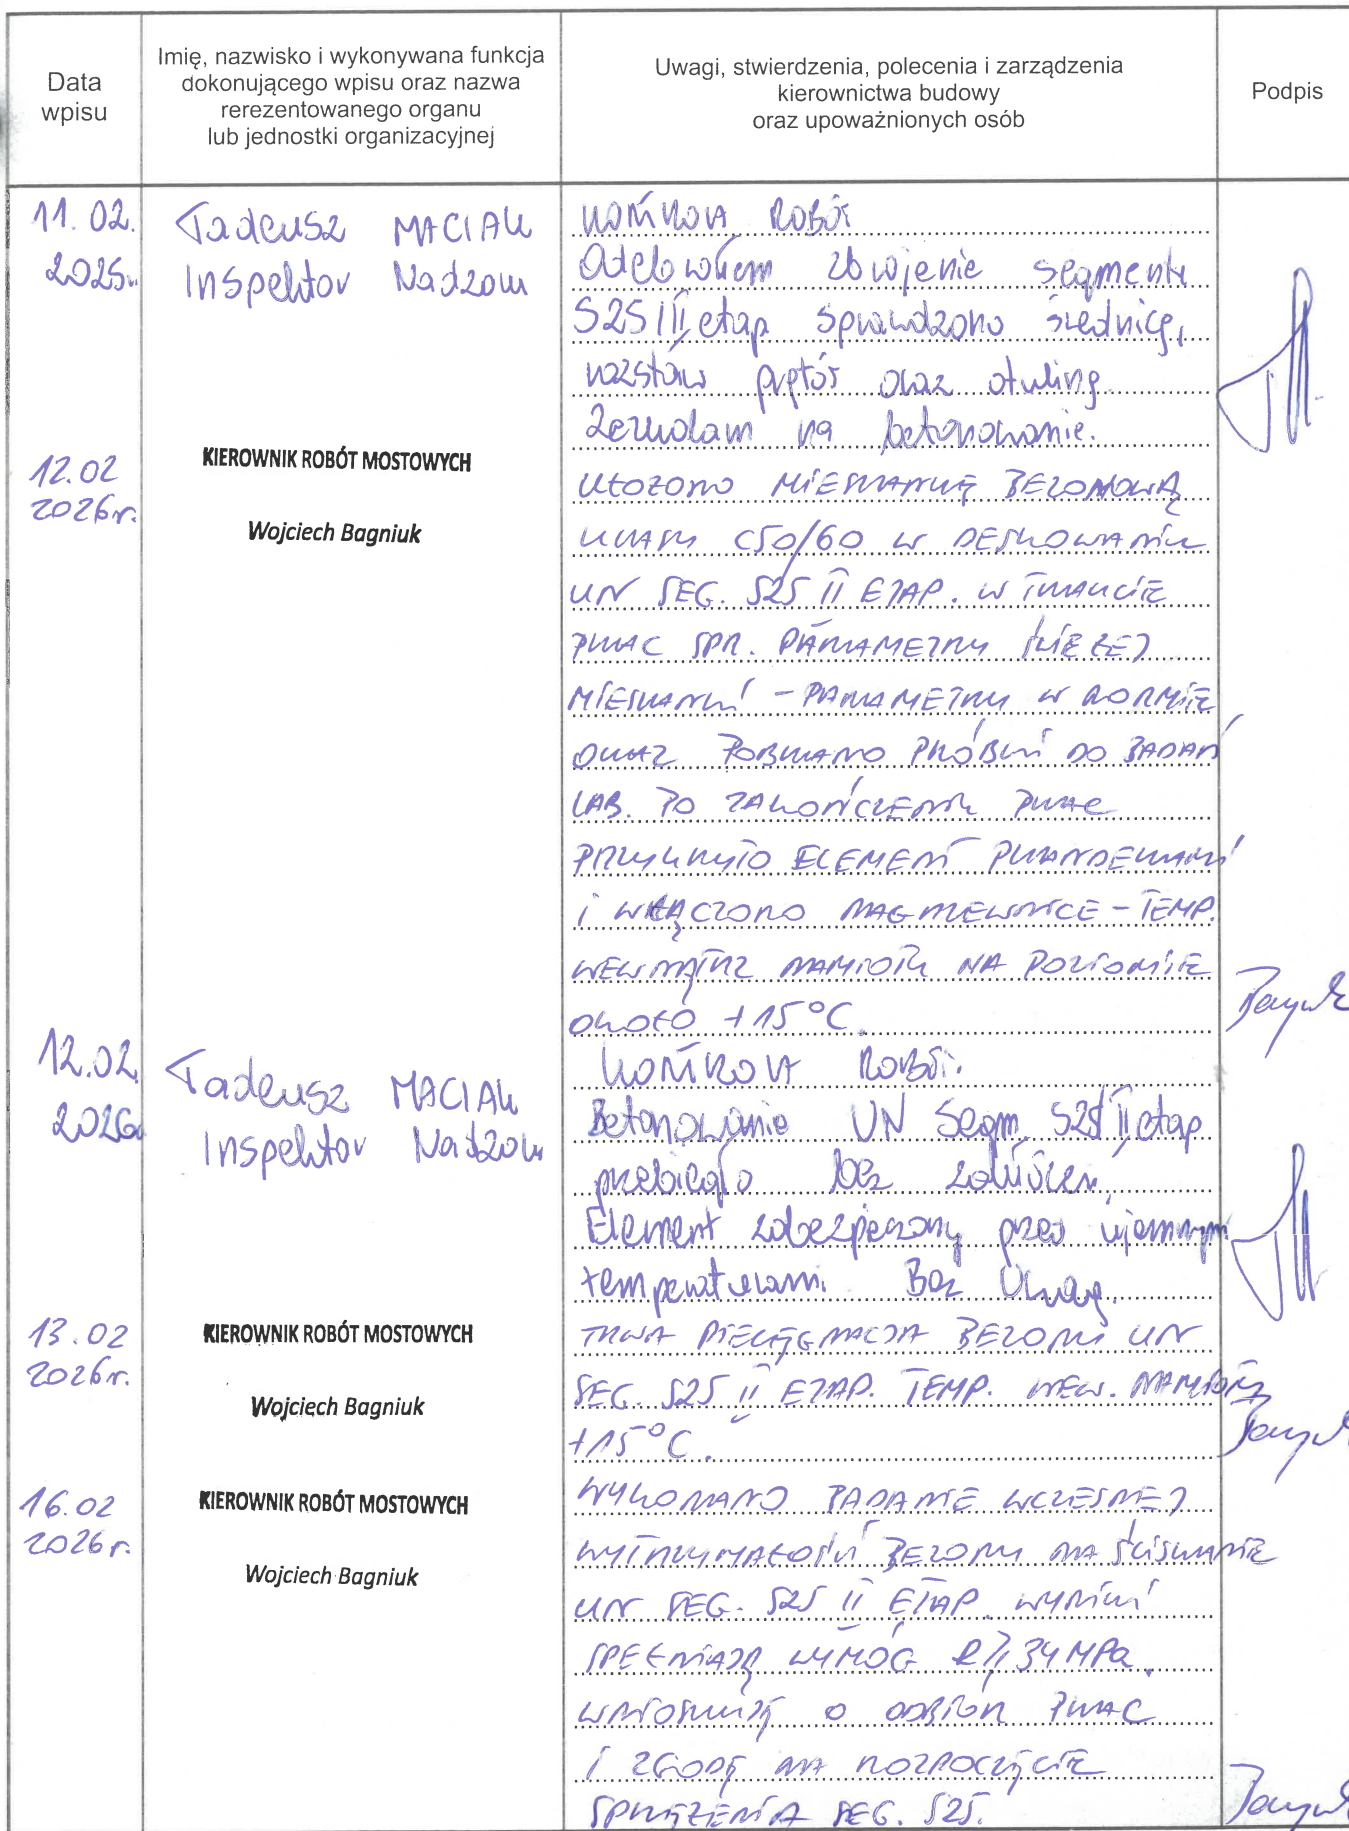 Data
wpisu
Imię, nazwisko i wykonywana funkcja
dokonującego wpisu oraz nazwa
rerezentowanego organu
lub jednostki organizacyjnej
Uwagi, stwierdzenia, polecenia i zarządzenia
kierownictwa budowy
oraz upoważnionych osób
Podpis
11.02.
2025r.
Tadeusz MACIAK
Inspektor Nadzoru
KONTROLA ROBÓT
Odebrałem zbrojenie segmentu
S25 III etap sprawdzono średnicę,
rozstaw prętów oraz otulinę.
Zezwalam na betonowanie.
12.02
2026r.
KIEROWNIK ROBÓT MOSTOWYCH
Wojciech Bagniuk
UŁOŻONO MIESZANKĘ BETONOWĄ
KLASY C50/60 W DESKOWANIU
UN SEG. S25 II ETAP. W TRAKCIE
PRAC SPR. PARAMETRY ŚWIEŻEJ
MIESZANKI - PARAMETRY W NORMIE
ORAZ POBRANO PRÓBKI DO BADAŃ
LAB. PO ZAKOŃCZENIU PRAC
PRZYKRYTO ELEMENT PLANDEKAMI
I WŁĄCZONO NAGRZEWNICE - TEMP.
WEWNĄTRZ NAMIOTU NA POZIOMIE
OKOŁO +15°C.
12.02.
2026r
Tadeusz MACIAK
Inspektor Nadzoru
KONTROLA ROBÓT.
Betonowanie UN Segm. S25 II etap
przebiegło bez zakłóceń.
Element zabezpieczony przed ujemnymi
temperaturami. Bez Uwag.
13.02
2026r.
KIEROWNIK ROBÓT MOSTOWYCH
Wojciech Bagniuk
TRWA PIELĘGNACJA BETONU UN
SEG. S25 II ETAP. TEMP. WEW. NAMIOTU
+15°C.
16.02
2026r.
KIEROWNIK ROBÓT MOSTOWYCH
Wojciech Bagniuk
WYKONANO BADANIE WCZESNEJ
WYTRZYMAŁOŚCI BETONU NA ŚCISKANIE
UN SEG. S25 II ETAP. WYNIKI
SPEŁNIAJĄ WYMÓG R≥34MPa.
WNIOSKUJĘ O ODBIÓR PRAC
I ZGODĘ NA ROZPOCZĘCIE
SPRĘŻENIA SEG. S25.